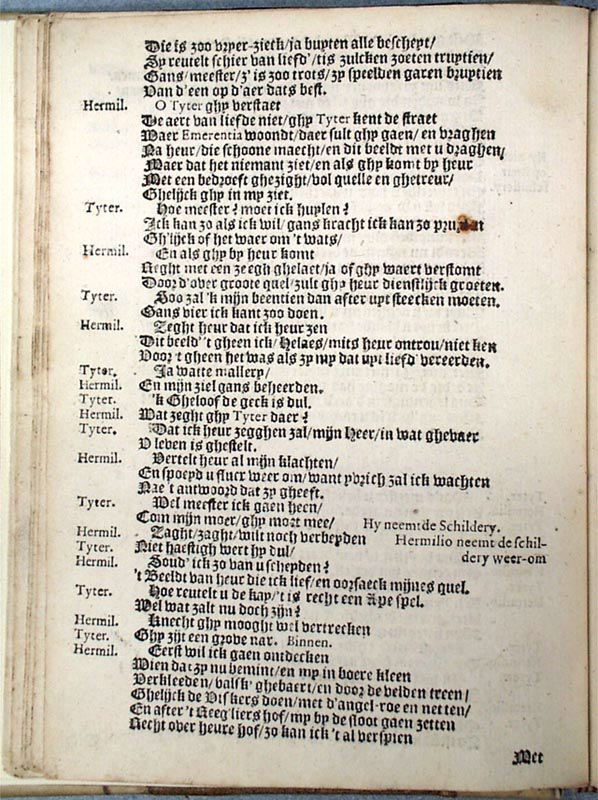 Die is zoo vryer-zietk/ja buyten alle bescheyt/
Sy reutelt schier van liefd'/tis zulcken zoeten truytien/
Gans/meester/z' is zoo trots/zy speelden garen bruytien
Van d'een op d'aer dats best.
Hermil. O Tyter ghy verstaet
De aert van liefde niet/ghy Tyter kent de straet
Waer Emerentia woondt/daer sult ghy gaen/en vraghen
Na heur/die schoone maecht/en dit beeldt met u draghen/
Maer dat het niemant ziet/en als ghy komt by heur
Met een bedroeft ghezight/vol quelle en ghetreur/
Ghelijck ghy in my ziet.
Tyter. Hoe meester? moet ick huylen?
Ick kan zo als ick wil/gans kracht ick kan zo
Gh'lijck of het waer om 't wats/
Hermil. En als ghy by heur komt
Neght met een zeegh ghelaet/ja of ghy waert verstomt
Door d'over groote quel/zult ghy heur dienstlijck groeten.
Tyter. Soo zal 'k mijn beentien dan after uyt steecken moeten.
Gans vier ick kant zoo doen.
Hermil. Zeght heur dat ick heur zen
Dit beeld' 't gheen ick/Helaes/mits heur ontrou/niet ken
Voor 't gheen het was als zy my dat uyt liefd' vereerden.
Tyter. Ja watte mallery/
Hermil. En mijn ziel gans beheerden.
Tyter. 'k Gheloof de geck is dul.
Hermil. Wat zeght ghy Tyter daer?
Tyter. Dat ick heur zegghen zal/mijn Heer/in wat ghevaer
U leven is ghestelt.
Hermil. Vertelt heur al mijn klachten/
En spoeyd u fluck weer om/want yvrich zal ick wachten
Nae 't antwoord dat zy gheeft.
Tyter. Wel meester ick gaen heen/
Com mijn moer/ghy mort mee/ Hy neemt de Schildery.
Hermil. Zaght/zaght/wilt noch verbeyden Hermilio neemt de schil-
Tyter. Niet haestigh wert hy dul/ dery weer-om
Hermil. Soud' ick zo van u scheyden?
't Beeldt van heur die ick lief/en oorsaeck mijnes quel.
Tyter. Hoe reutelt u de kap/'t is recht een Ape spel.
Wel wat zalt nu doch zijn?
Hermil. Knecht ghy mooght wel vertrecken
Tyter. Ghy zijt een grove nar. Binnen.
Hermil. Eerst wil ick gaen ontdecken
Wien dat zy nu bemint/en my in boere kleen
Verkleeden/valsk' ghebaert/en door de velden treen/
Ghelijck de Viskers doen/met d'angel-roe en netten/
En after 't Reeg'liers hof/my by de sloot gaen zetten
Recht over heure hof/zo kan ick 't al verspien
Met